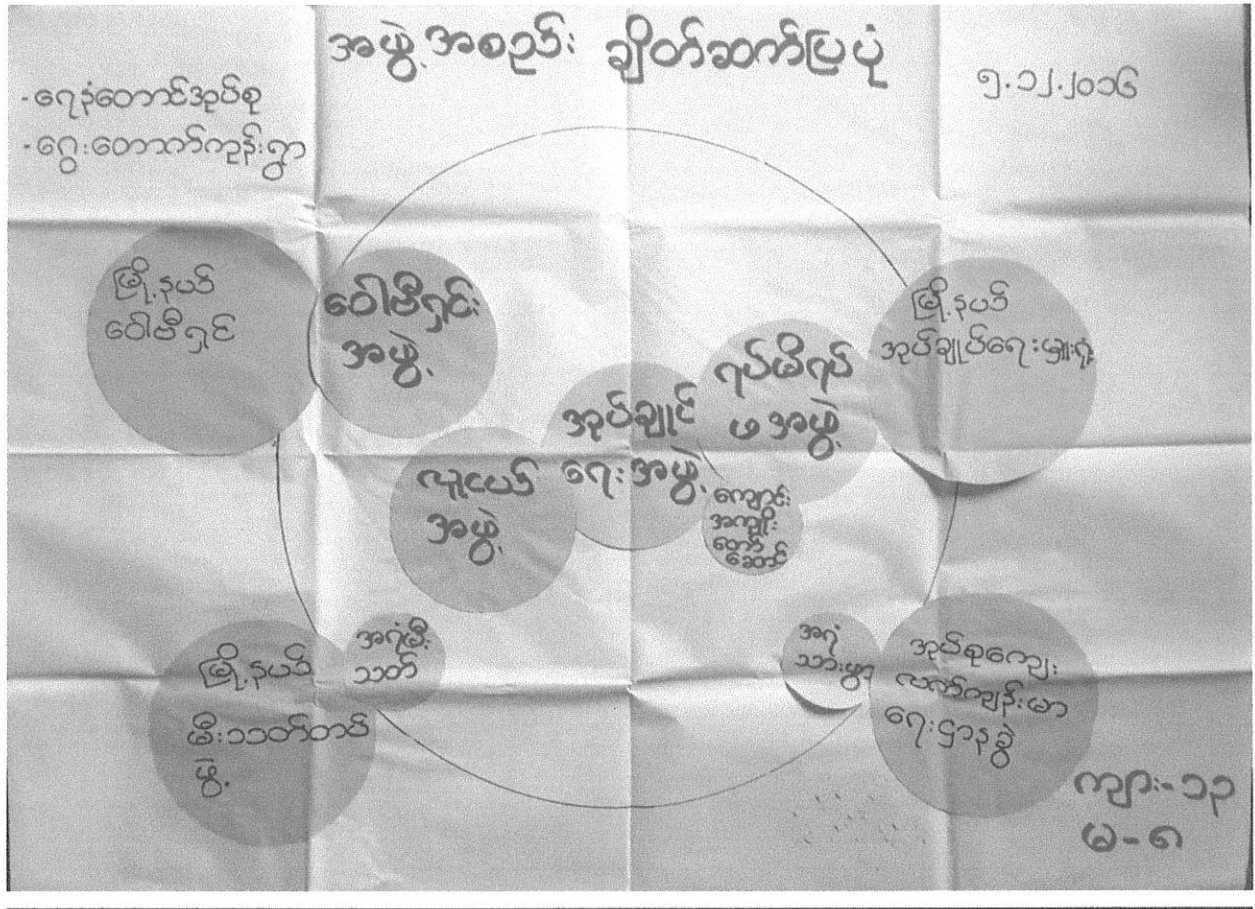 အဖွဲ့အစည်း ချိတ်ဆက်ပြပုံ
၅.၁၂.၂၀၁၆
-ရေနံတောင်အုပ်စု
-ငွေးတောက်ကုန်းရွာ
မြို့နယ်
ဝေါဗီရှင်
ဝေါဗီရှင်း
အဖွဲ့
အုပ်ချုပ်
ရေးအဖွဲ့
ရပ်မိရပ်
ဖအဖွဲ့
မြို့နယ်
အုပ်ချုပ်ရေးမှူးရုံး
လူငယ်
အဖွဲ့
ကျောင်း
အကျိုး
တော်
ဆောင်
မြို့နယ်
မီးသတ်တပ်
ဖွဲ့
အရံမီး
သတ်
အရံ
သားဖွား
အုပ်စုကျေး
လက်ကျန်းမာ
ရေးဌာနခွဲ
ကျား-၁၃
မ-၈